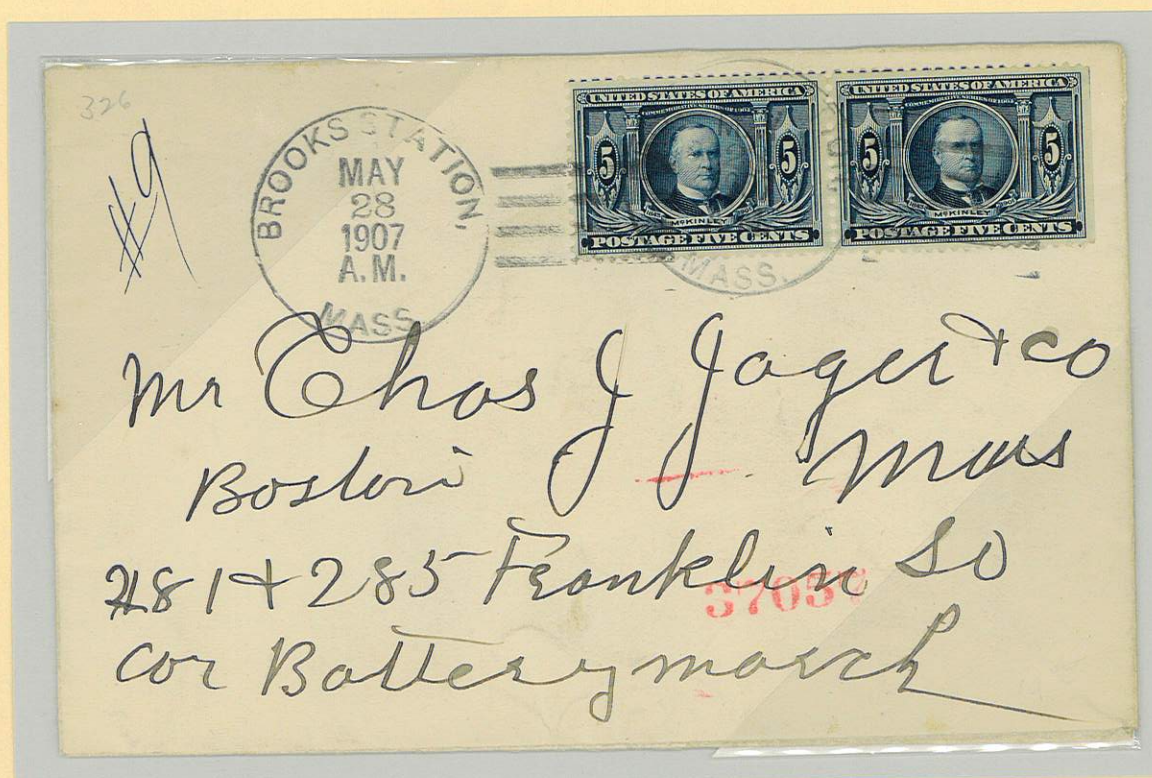 326
#9
BROOKS STATION,
MAY
28
1907
A.M.
MASS.
UNITED STATES OF AMERICA
COMMEMORATIVE SERIES OF 1904
5 5
McKINLEY
POSTAGE FIVE CENTS
UNITED STATES OF AMERICA
COMMEMORATIVE SERIES OF 1904
5 5
McKINLEY
POSTAGE FIVE CENTS
MASS.
Mr Chas J Jager & Co
Boston Mass
281 & 285 Franklin St
37057
cor Batterymarch